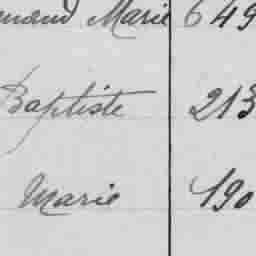 Marie 649
Baptiste 213
Marie 190